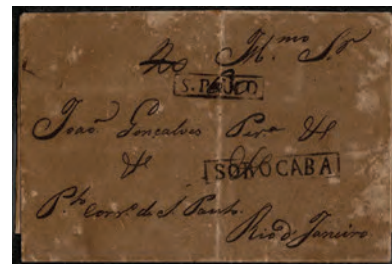 Ao Il.mo S.r
S. PAULO
João Gonçalves Per.a &
&
SOROCABA
P.h Corr.o de S. Paulo.
Rio de Janeiro